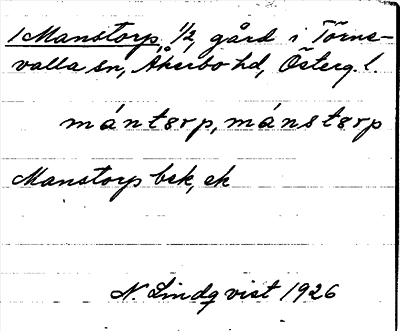 1 Manstorp, 1/2, gård i Törne-
valla sn, Åkerbo hd, Österg. l.
mántərp, mánstərp
Manstorp bsk, ek
N. Lindqvist 1926